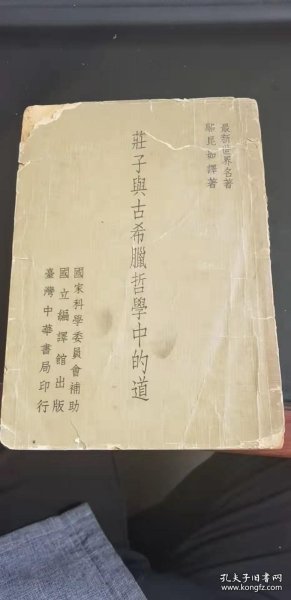 最新世界名著
鄔昆如譯著
莊子與古希臘哲學中的道
國家科學委員會補助
國立編譯館出版
臺灣中華書局印行
孔夫子旧书网